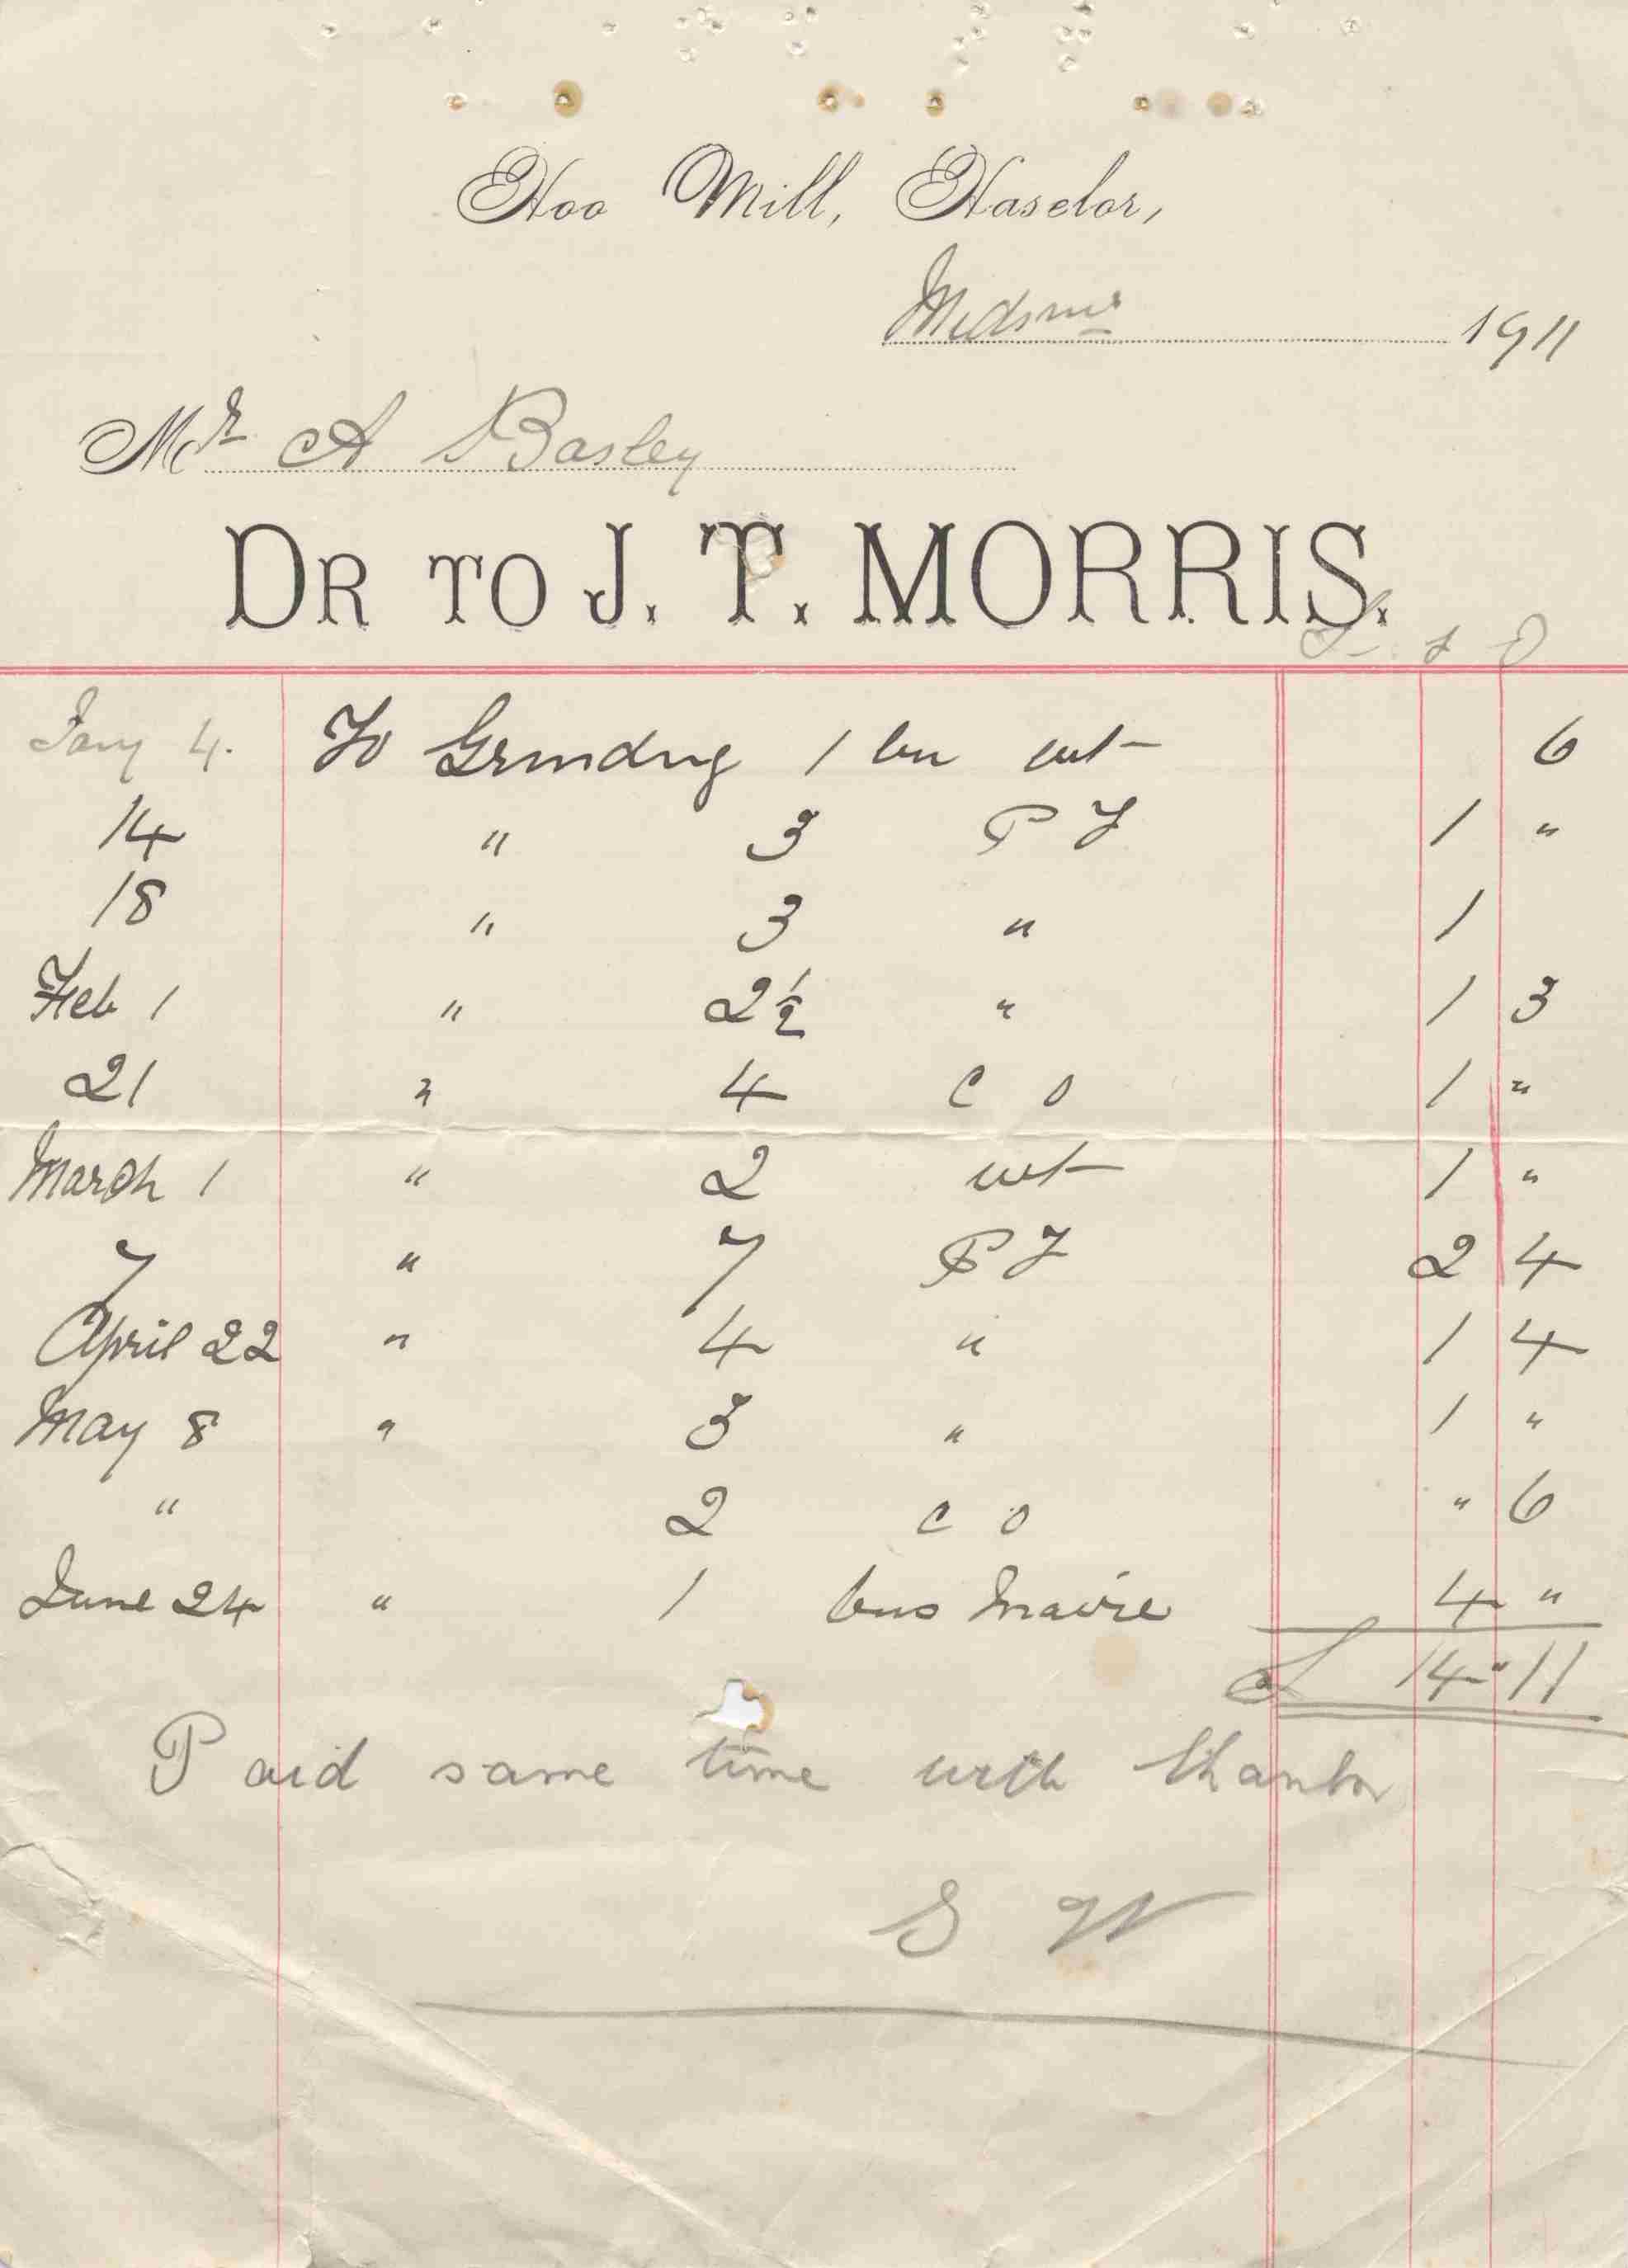 Hoo Mill, Haselor,
Midsmr 1911
Mr A Basley
DR TO J. T. MORRIS.
£ s D
Jany 4. To Grinding 1 bu wt 6
14 " 3 P J 1 "
18 " 3 " 1
Feb 1 " 2½ " 1 3
21 " 4 C O 1 "
March 1 " 2 wt 1 "
7 " 7 P J 2 4
April 22 " 4 " 1 4
May 8 " 3 " 1 "
" 2 C O " 6
June 24 " 1 bus 4 "
£ 14 " 11
Paid same time with thanks
S W